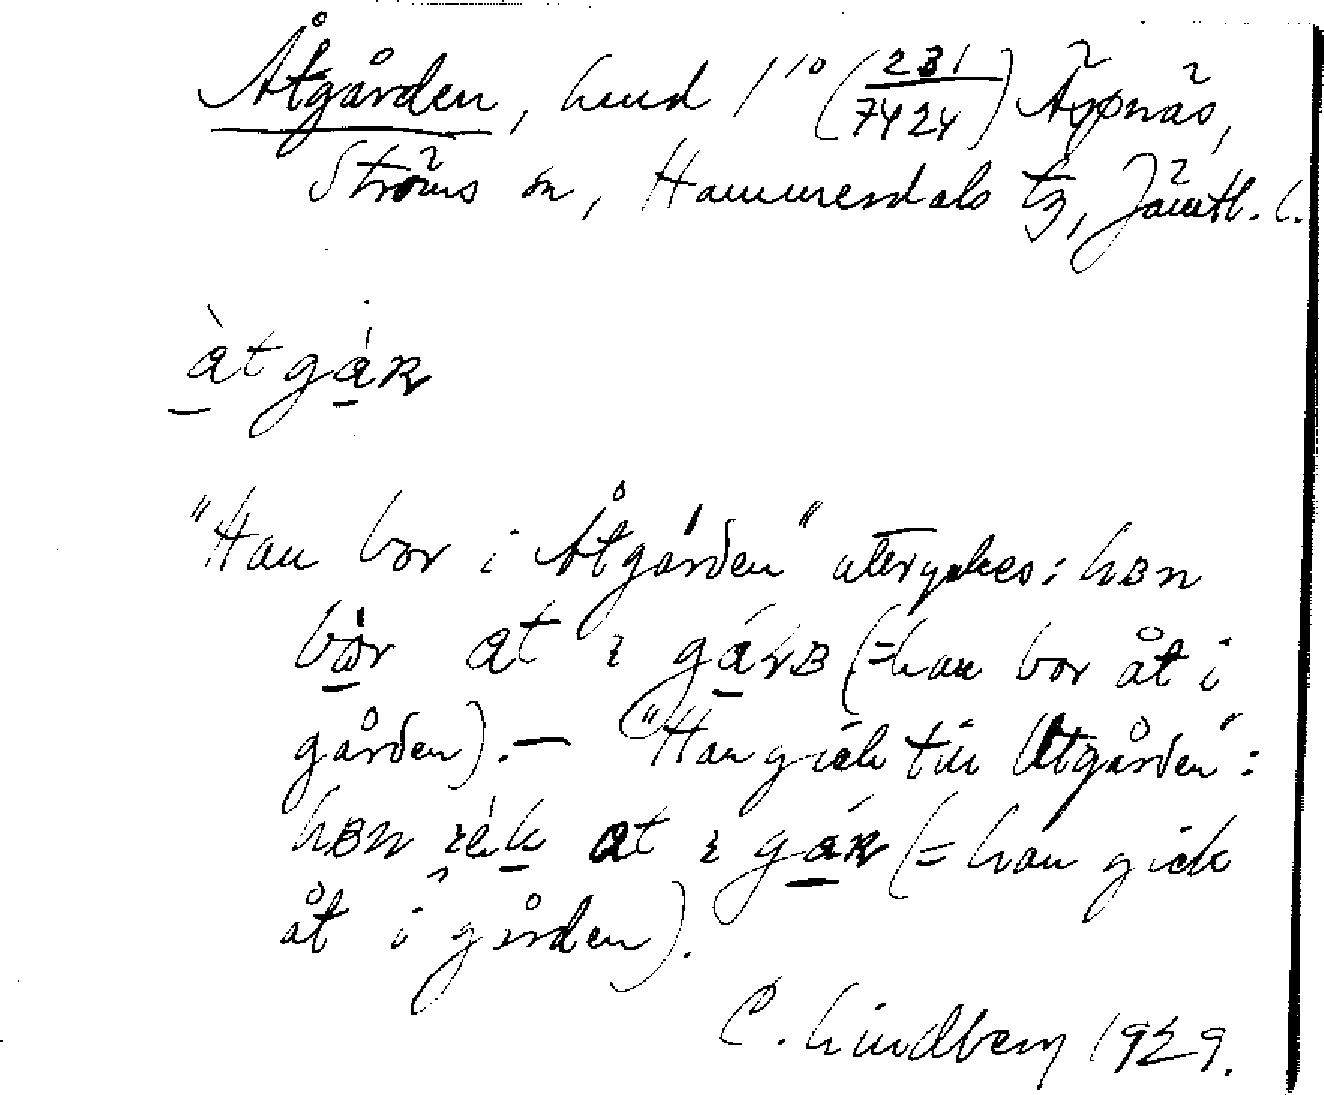 Åtgården, hmd 1¹⁰ (231/7424) Äspnäs,
Ströms sn, Hammerdals tg, Jämtl. l.
àtgáʀ
"Han bor i Åtgården" uttryckes: hʙn
bòr at ɩ gárʙ (= han bor åt i
gården). — "Han gick till Åtgården":
hʙn at ɩ gáʀ (= han gick
åt i gården).
C. Lindberg 1929.